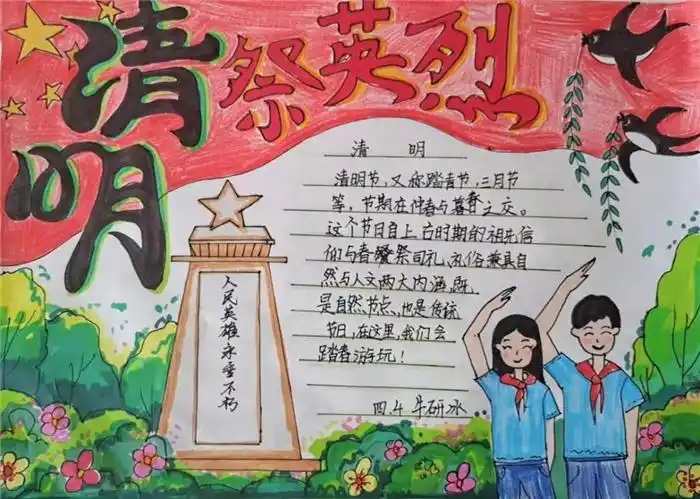 清明
祭英烈
清 明
清明节，又称踏青节，三月节
等，节期在仲春与暮春之交。
这个节日自上古时期的祖先信
仰与春祭司礼，礼俗兼具自
然与人文两大内涵，既
是自然节点，也是传统
节日，在这里，我们会
踏春游玩！
四.4 牛研冰
人民英雄永垂不朽